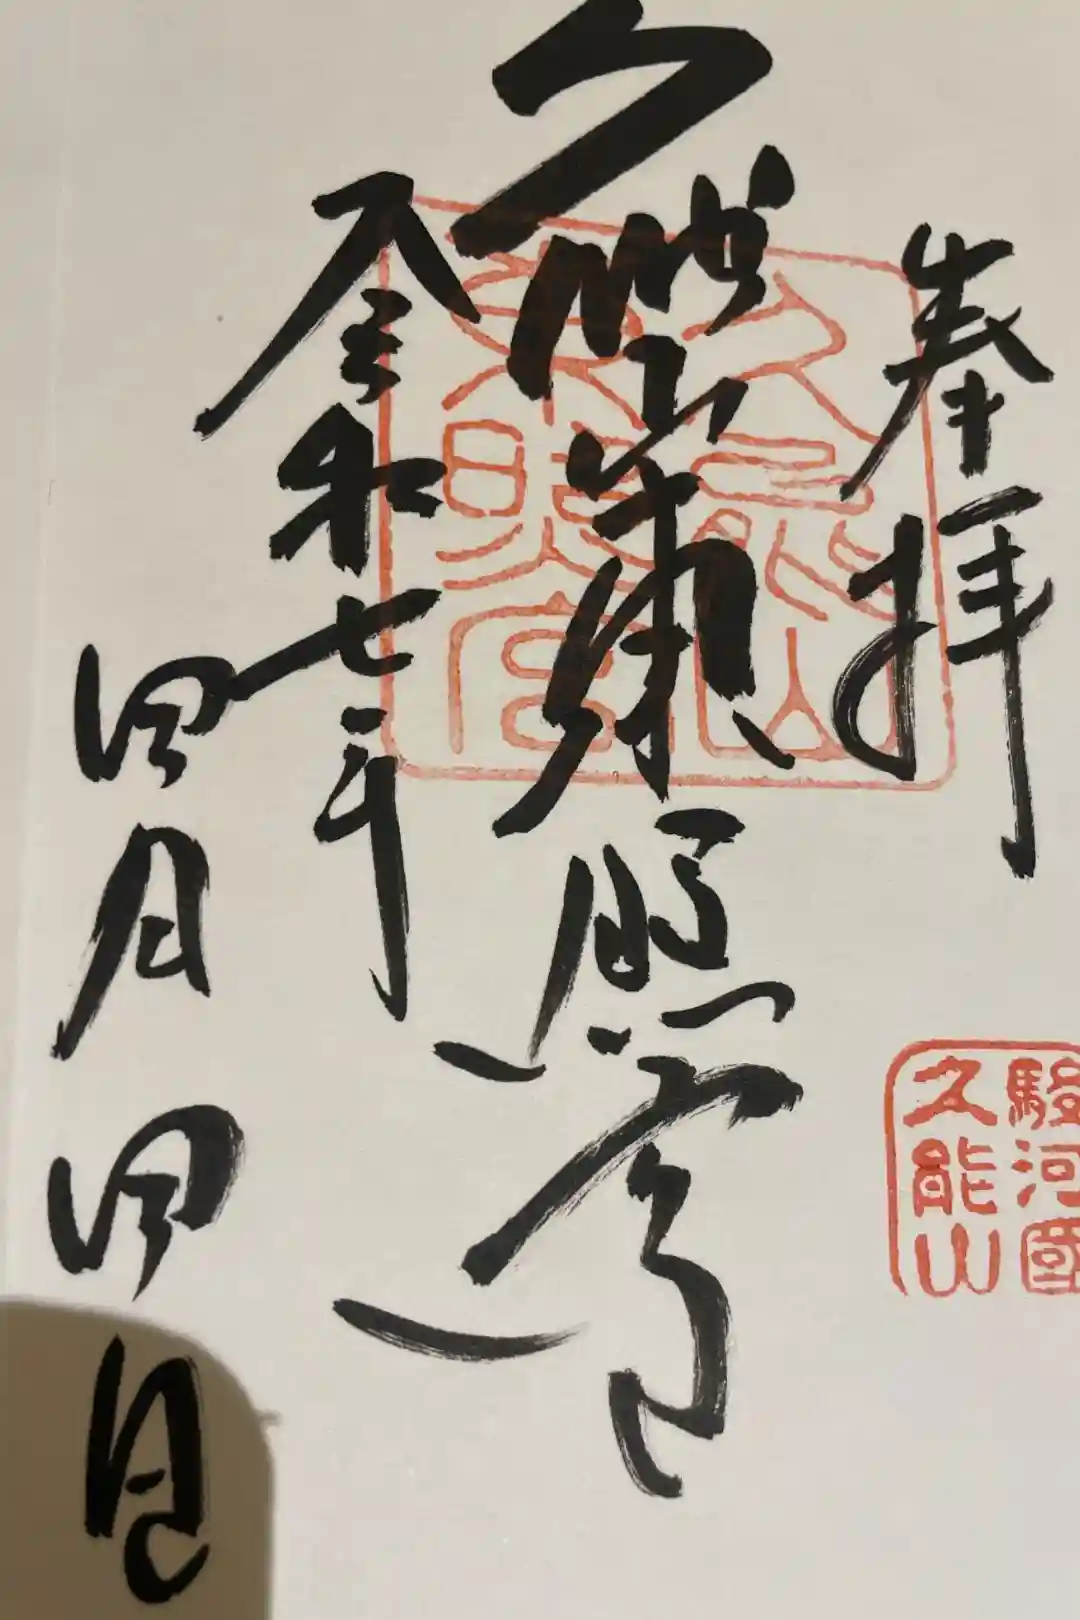 奉拝
駿河國
久能山
久能山
東照宮
久能山東照宮
令和七年
四月四日